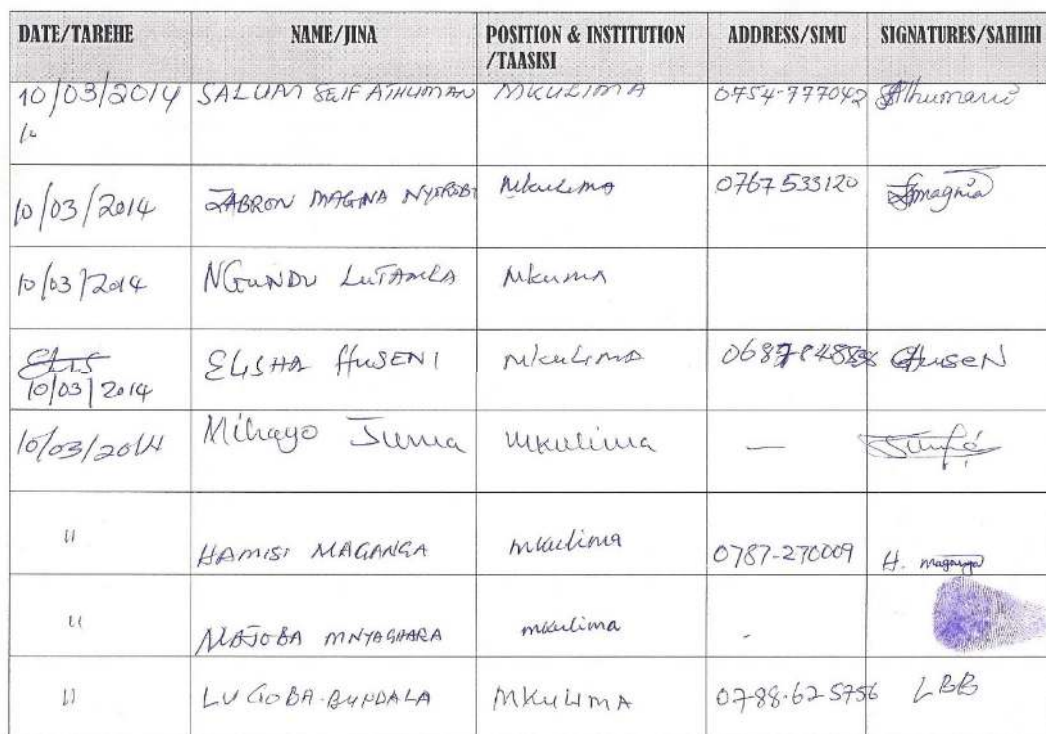 DATE/TAREHE NAME/JINA POSITION & INSTITUTION /TAASISI ADDRESS/SIMU SIGNATURES/SAHIHI
10/03/2014 SALUM SEIF ATHUMAN MKULIMA 0754-777042 SAthumani
10/03/2014 JABRON MAGINA Mkulima 0767 533120
10/03/2014 NGUNDU LUTAMLA Mkuma
10/03/2014 ELISHA HUSENI Mkulima HuseN
10/03/2014 Mihayo Juma Mkulima —
" HAMISI MAGANGA mkulima 0787-270009 H. maganga
" MNYAGHARA mkulima -
" LUGOBA-BUNDALA MKULIMA 0788-62-5756 LBB